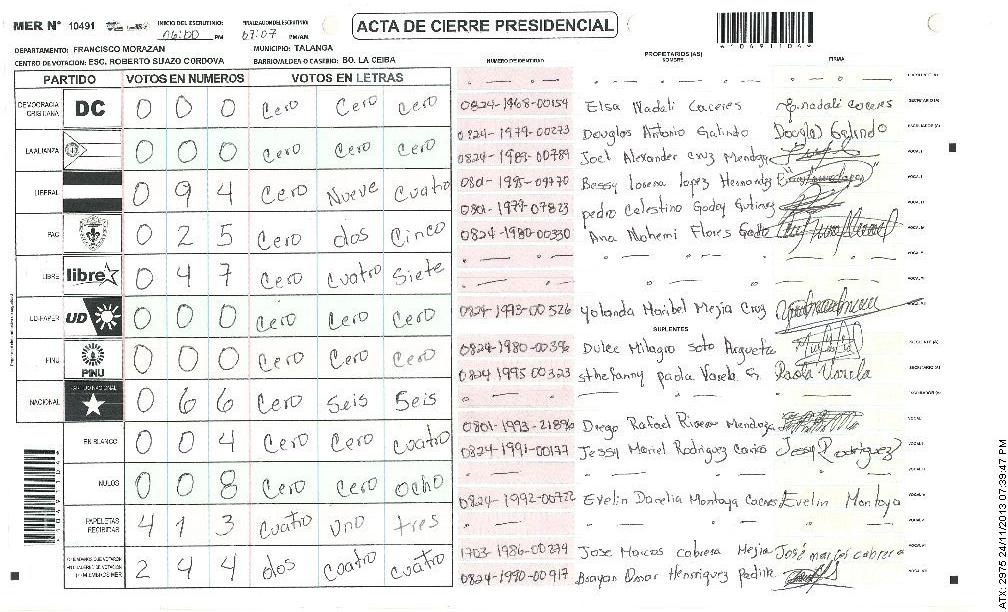 MER N° 10491
INICIO DEL ESCRUTINIO: 06:00 PM
07:07 PM/AM
ACTA DE CIERRE PRESIDENCIAL
*0491104*
DEPARTAMENTO: FRANCISCO MORAZAN
MUNICIPIO: TALANGA
CENTRO DE VOTACION: ESC. ROBERTO SUAZO CORDOVA
BARRIO/ALDEA O CASERIO: BO. LA CEIBA
NUMERO DE IDENTIDAD
PROPIETARIOS (AS)
NOMBRE
FIRMA
PARTIDO VOTOS EN NUMEROS VOTOS EN LETRAS
DEMOCRACIA CRISTIANA DC 0 0 0 Cero Cero Cero
LA ALIANZA 0 0 0 Cero Cero Cero
LIBERAL 0 9 4 Cero Nueve Cuatro
PAC 0 2 5 Cero dos Cinco
LIBRE libre 0 4 7 Cero Cuatro Siete
UD-FAPER UD 0 0 0 Cero Cero Cero
PINU PINU 0 0 0 Cero Cero Cero
NACIONAL 0 6 6 Cero Seis Seis
EN BLANCO 0 0 4 Cero Cero Cuatro
NULOS 0 0 8 Cero Cero Ocho
PAPELETAS RECIBIDAS 4 1 3 Cuatro uno tres
2 4 4 dos Cuatro cuatro
0824-1968-00159 Elsa Nadali Caceres
0824-1979-00273 Douglas Antonio Galindo Douglas Galindo
0824-1983-00789 Joel Alexander Cruz Mendoza
0801-1985-09770 Bessy Lorena Lopez Hernandez
0801-1979-07823 pedro Celestino Godoy Gutierrez
0824-1980-00330 Ana Nohemi Flores
0824-1993-00526 Yolanda Maribel Mejia Cruz
SUPLENTES
0824-1980-00396 Dulce Milagro Soto Argueta
0824 1995 00323 sthefanny paola Varela Paola Varela
0801-1993-21890 Diego Rafael Mendoza
0824-1991-00177 Jessy Mariel Rodriguez Jessy Rodriguez
0824-1992-00722 Evelin Montoya Evelin Montoya
1703-1986-00279 Jose Marcos Cabrera Mejia José marcos cabrera
0824-1990-00917 Brayan Omar Henrriquez Padilla
ATX: 2975 24/11/2013 07:39:47 PM